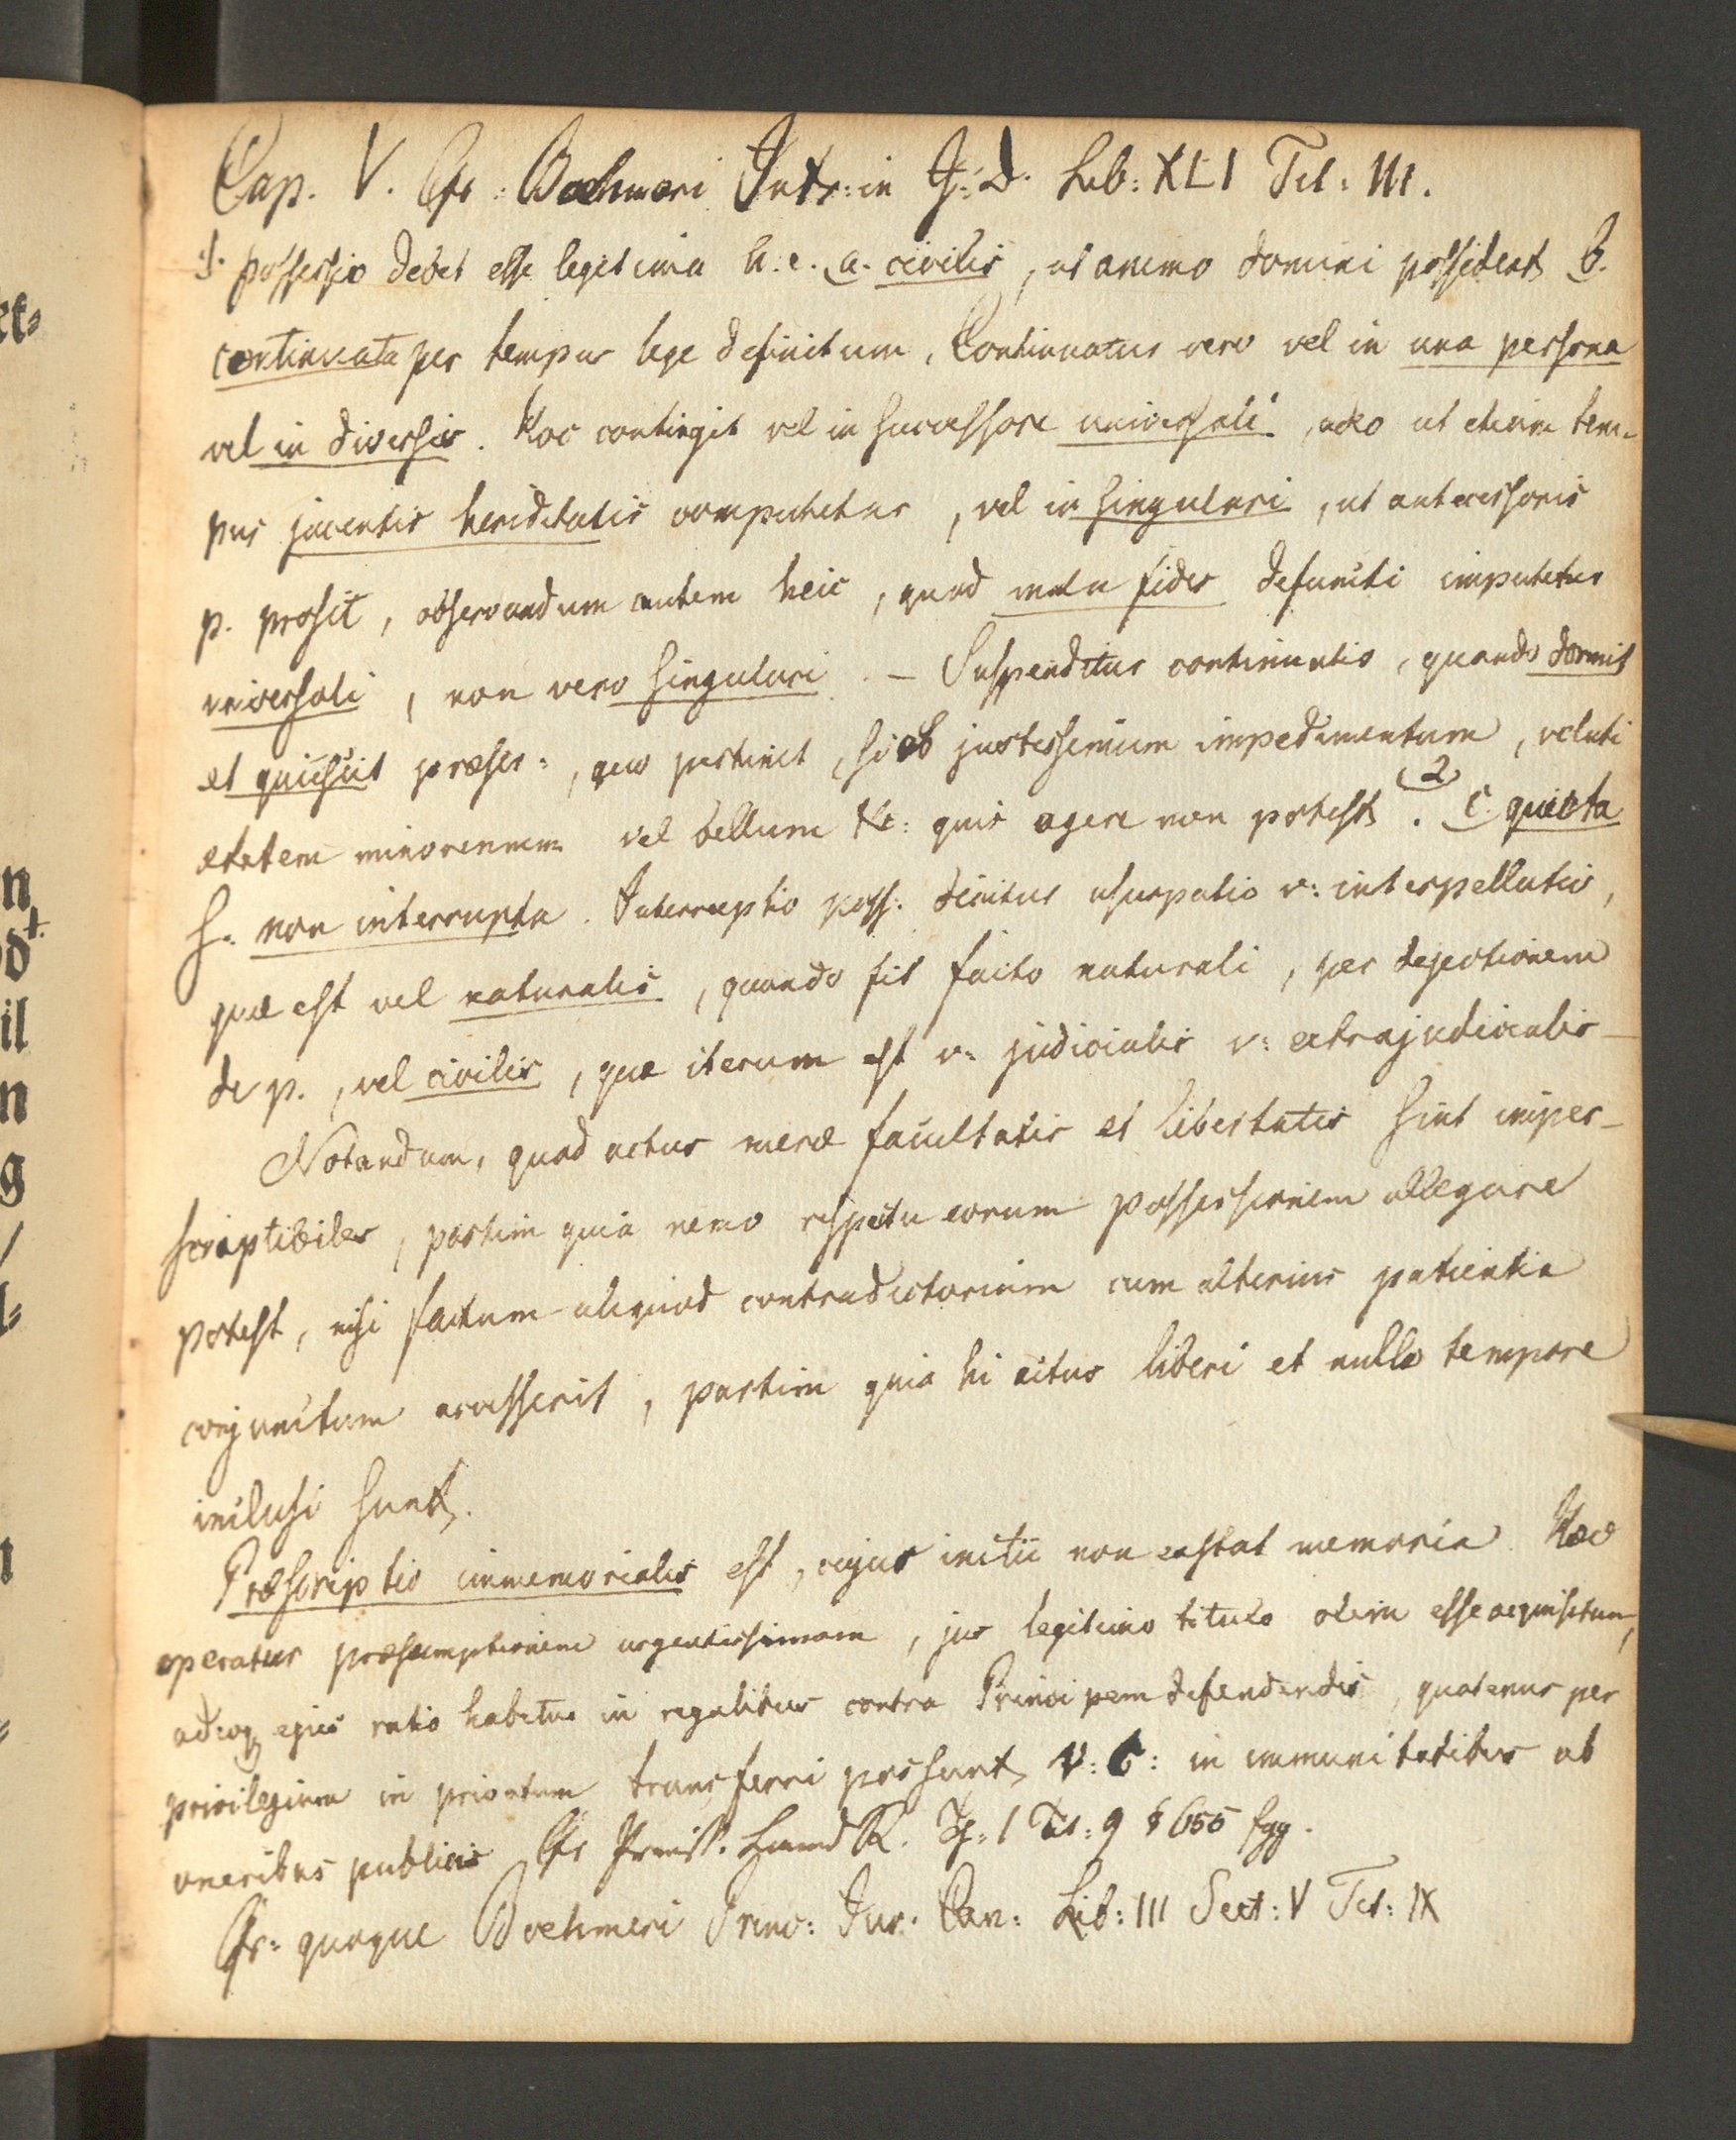 Cap. V. Cfr: Boehmeri Intr: in J: D. Lib: XLI Tit: III.
possessio debet esse legitima h. e. a. civilis, ut animo domini possideat b.
continuata per tempus lege definitum. Continuatur vero vel in una persona
vel in diversis. Hoc contingit vel in successore universali, adeo ut etiam tem-
pus jacentis hereditatis computetur, vel in singulari, ut antecessoris
p. prosit, observandum autem heic, quod mala fides defuncti imputetur
universali, non vero singulari. – Suspenditur continuatio, quando dormit
et quiescit præscr:, quo pertinet, si ob justissimum impedimentum, veluti
ætatem minorennem vel bellum &c: quis agere non potest. 2 c quieta
s. non interrupta. Interruptio poss: dicitur usurpatio v: interpellatio,
quæ est vel naturalis, quando fit facto naturali, per dejectionem
de p., vel civilis, quæ iterum est v: judicialis v: extrajudicialis –
Notandum, quod actus meræ facultatis et libertatis sint impre-
scriptibiles, partim quia nemo respectu eorum possessionem allegare
potest, nisi factum aliquod contradictorium cum alterius patientia
conjunctum accesserit, partim quia hi actus liberi et nullo tempore
inclusi sunt.
Præscriptio immemorialis est, cujus initii non exstat memoria. Hæc
operatur præsumptionem urgentissimam, jus legitimo titulo olim esse acquisitum,
adeoq ejus ratio habetur in regalibus contra Principem defendendis, quatenus per
privilegium in privatum transferri possunt, v: c: in immunitatibus ab
oneribus publicis Cfr Preuß. Land R. Th: I Tit: 9 § 655 sqq.
Cfr: quoque Boehmeri Princ: Jur. Can: Lib: III Sect: V Tit: IX
ct=
n
il
n
g